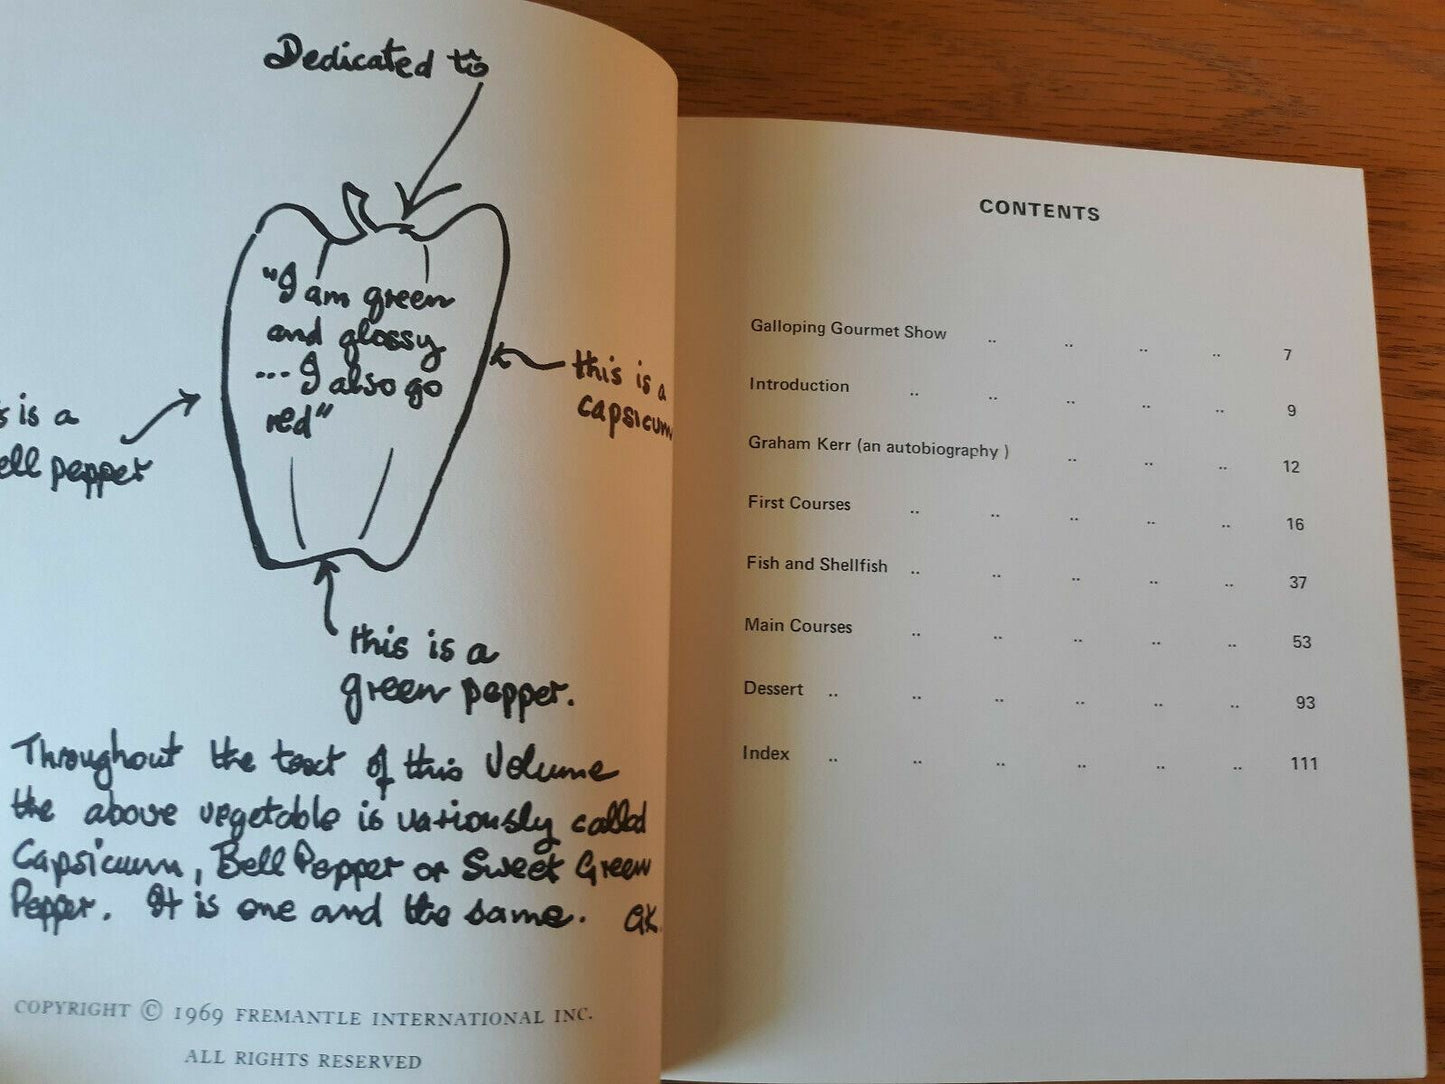 Dedicated to
"I am green
and glossy
... I also go
red"
this is a
capsicum
s is a
ell pepper
this is a
green pepper.
Throughout the text of this Volume
the above vegetable is variously called
Capsicum, Bell Pepper or Sweet Green
Pepper. It is one and the same. GK.
COPYRIGHT © 1969 FREMANTLE INTERNATIONAL INC.
ALL RIGHTS RESERVED
CONTENTS
Galloping Gourmet Show .. .. .. .. 7
Introduction .. .. .. .. .. 9
Graham Kerr (an autobiography ) .. .. .. 12
First Courses .. .. .. .. .. 16
Fish and Shellfish .. .. .. .. .. 37
Main Courses .. .. .. .. .. 53
Dessert .. .. .. .. .. .. 93
Index .. .. .. .. .. .. 111